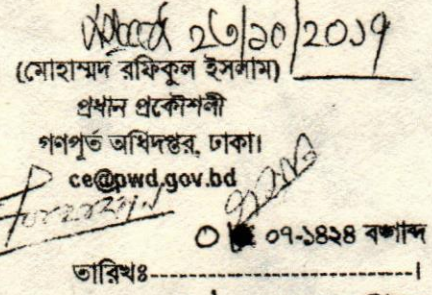 ২৩/১০/২০১৭
(মোহাম্মদ রফিকুল ইসলাম)
প্রধান প্রকৌশলী
গণপূর্ত অধিদপ্তর, ঢাকা।
ce@pwd.gov.bd
০৭-১৪২৪ বঙ্গাব্দ
তারিখঃ-----------------------------------।